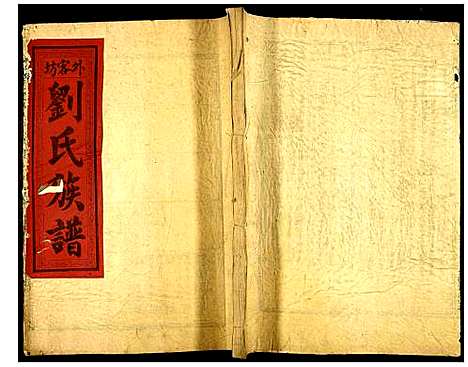 外客坊
劉氏族譜